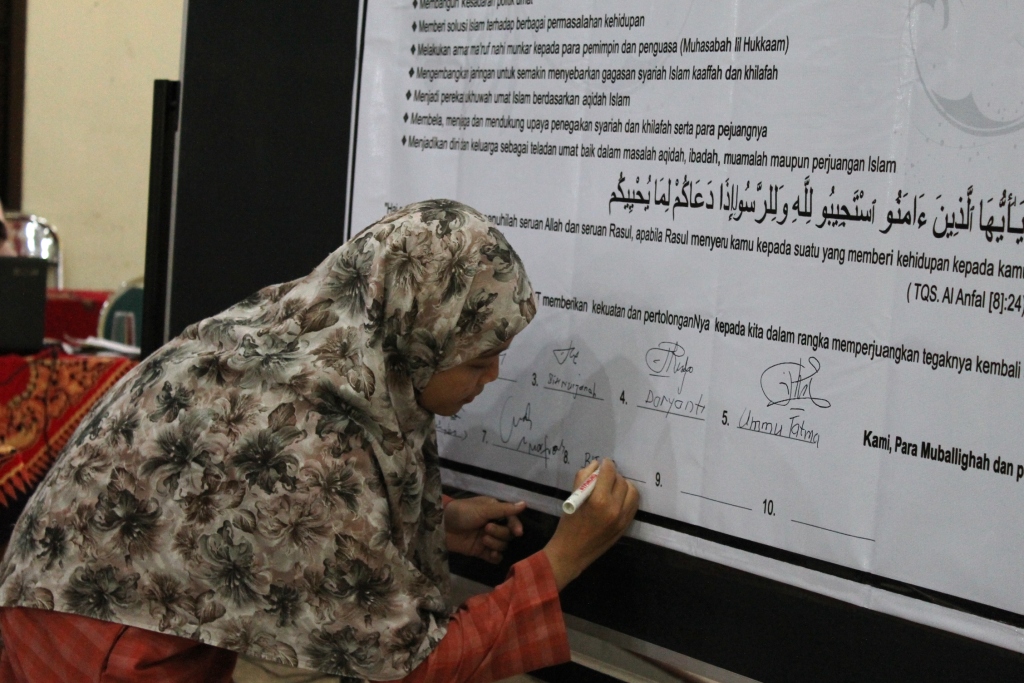 Membangun Kesadaran politik umat
◆ Memberi solusi islam terhadap berbagai permasalahan kehidupan
◆ Melakukan amar ma'ruf nahi munkar kepada para pemimpin dan penguasa (Muhasabah lil Hukkaam)
◆ Mengembangkan jaringan untuk semakin menyebarkan gagasan syariah Islam kaaffah dan khilafah
◆ Menjadi perekat ukhuwah umat Islam berdasarkan aqidah Islam
◆ Membela, menjaga dan mendukung upaya penegakan syariah dan khilafah serta para pejuangnya
◆ Menjadikan diri dan keluarga sebagai teladan umat baik dalam masalah aqidah, ibadah, muamalah maupun perjuangan Islam
يَٰٓأَيُّهَا ٱلَّذِينَ ءَامَنُو ٱسْتَجِيبُو لِلَّهِ وَلِلرَّسُولِ إِذَا دَعَاكُمْ لِمَا يُحْيِيكُم
"Hai penuhilah seruan Allah dan seruan Rasul, apabila Rasul menyeru kamu kepada suatu yang memberi kehidupan kepada kamu
( TQS. Al Anfal [8]:24)
T memberikan kekuatan dan pertolonganNya kepada kita dalam rangka memperjuangkan tegaknya kembali
3. 4. Daryanti 5. Ummu Fatma
Kami, Para Muballighah dan p
7. 8. 9. 10.